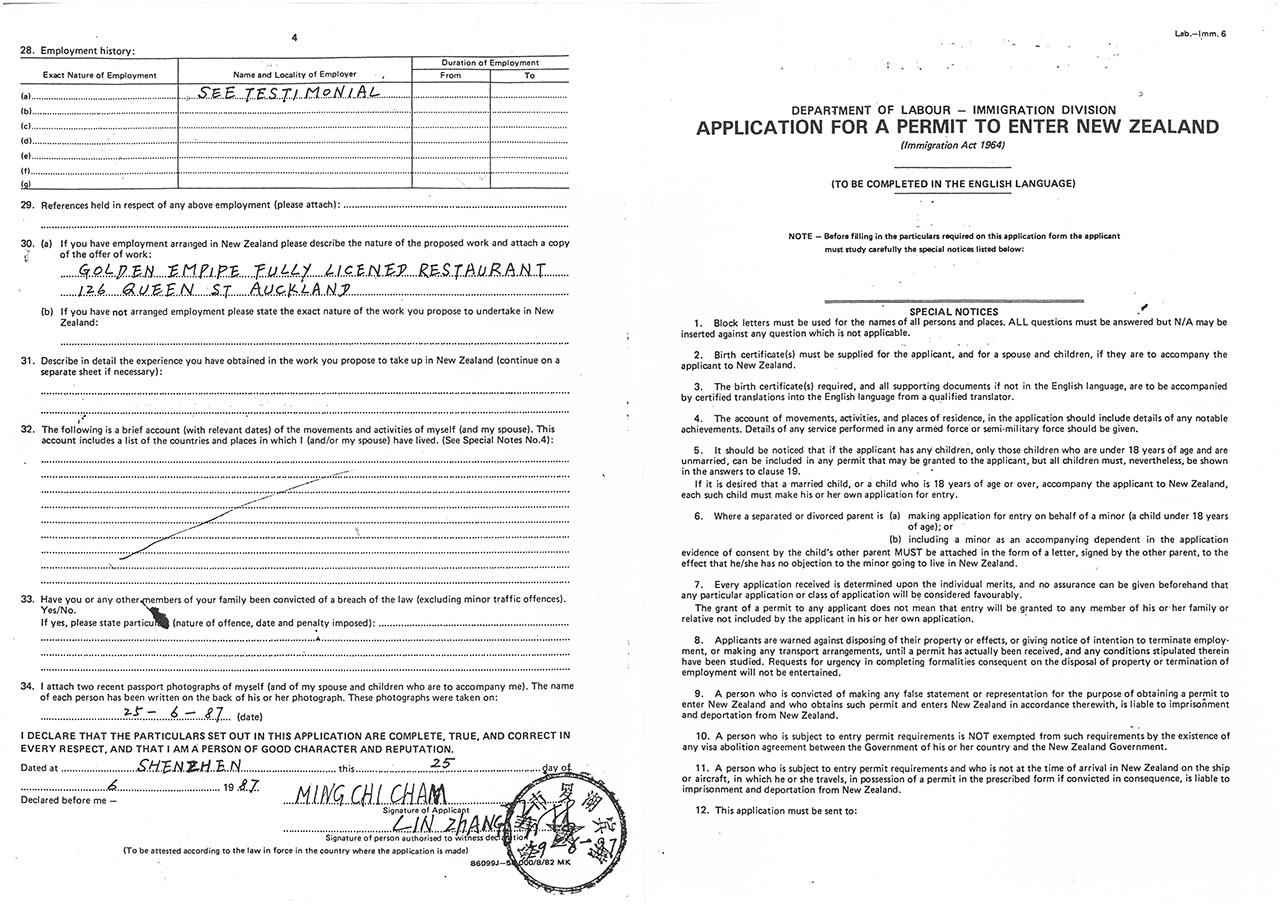 4
28. Employment history:
Duration of Employment
Exact Nature of Employment Name and Locality of Employer From To
(a) SEE TESTIMONIAL
(b)
(c)
(d)
(e)
(f)
(g)
29. References held in respect of any above employment (please attach):
30. (a) If you have employment arranged in New Zealand please describe the nature of the proposed work and attach a copy
of the offer of work:
GOLDEN EMPIPE FULLY LICENED RESTAURANT
126 QUEEN ST AUCKLAND
(b) If you have not arranged employment please state the exact nature of the work you propose to undertake in New
Zealand:
31. Describe in detail the experience you have obtained in the work you propose to take up in New Zealand (continue on a
separate sheet if necessary):
32. The following is a brief account (with relevant dates) of the movements and activities of myself (and my spouse). This
account includes a list of the countries and places in which I (and/or my spouse) have lived. (See Special Notes No.4):
33. Have you or any other members of your family been convicted of a breach of the law (excluding minor traffic offences).
Yes/No.
If yes, please state (nature of offence, date and penalty imposed):
34. I attach two recent passport photographs of myself (and of my spouse and children who are to accompany me). The name
of each person has been written on the back of his or her photograph. These photographs were taken on:
25 - 6 - 87 (date)
I DECLARE THAT THE PARTICULARS SET OUT IN THIS APPLICATION ARE COMPLETE, TRUE, AND CORRECT IN
EVERY RESPECT, AND THAT I AM A PERSON OF GOOD CHARACTER AND REPUTATION.
Dated at SHENZHEN this 25 day of
6 19 87.
Declared before me –
MING CHI CHAM
Signature of Applicant
LIN ZHANG
Signature of person authorised to witness declaration
(To be attested according to the law in force in the country where the application is made)
市罗湖宾
000/8/82 MK
Lab.–Imm. 6
DEPARTMENT OF LABOUR – IMMIGRATION DIVISION
APPLICATION FOR A PERMIT TO ENTER NEW ZEALAND
(Immigration Act 1964)
(TO BE COMPLETED IN THE ENGLISH LANGUAGE)
NOTE – Before filling in the particulars required on this application form the applicant
must study carefully the special notices listed below:
SPECIAL NOTICES
1. Block letters must be used for the names of all persons and places. ALL questions must be answered but N/A may be
inserted against any question which is not applicable.
2. Birth certificate(s) must be supplied for the applicant, and for a spouse and children, if they are to accompany the
applicant to New Zealand.
3. The birth certificate(s) required, and all supporting documents if not in the English language, are to be accompanied
by certified translations into the English language from a qualified translator.
4. The account of movements, activities, and places of residence, in the application should include details of any notable
achievements. Details of any service performed in any armed force or semi-military force should be given.
5. It should be noticed that if the applicant has any children, only those children who are under 18 years of age and are
unmarried, can be included in any permit that may be granted to the applicant, but all children must, nevertheless, be shown
in the answers to clause 19.
If it is desired that a married child, or a child who is 18 years of age or over, accompany the applicant to New Zealand,
each such child must make his or her own application for entry.
6. Where a separated or divorced parent is (a) making application for entry on behalf of a minor (a child under 18 years
of age); or
(b) including a minor as an accompanying dependent in the application
evidence of consent by the child's other parent MUST be attached in the form of a letter, signed by the other parent, to the
effect that he/she has no objection to the minor going to live in New Zealand.
7. Every application received is determined upon the individual merits, and no assurance can be given beforehand that
any particular application or class of application will be considered favourably.
The grant of a permit to any applicant does not mean that entry will be granted to any member of his or her family or
relative not included by the applicant in his or her own application.
8. Applicants are warned against disposing of their property or effects, or giving notice of intention to terminate employ-
ment, or making any transport arrangements, until a permit has actually been received, and any conditions stipulated therein
have been studied. Requests for urgency in completing formalities consequent on the disposal of property or termination of
employment will not be entertained.
9. A person who is convicted of making any false statement or representation for the purpose of obtaining a permit to
enter New Zealand and who obtains such permit and enters New Zealand in accordance therewith, is liable to imprisonment
and deportation from New Zealand.
10. A person who is subject to entry permit requirements is NOT exempted from such requirements by the existence of
any visa abolition agreement between the Government of his or her country and the New Zealand Government.
11. A person who is subject to entry permit requirements and who is not at the time of arrival in New Zealand on the ship
or aircraft, in which he or she travels, in possession of a permit in the prescribed form if convicted in consequence, is liable to
imprisonment and deportation from New Zealand.
12. This application must be sent to: